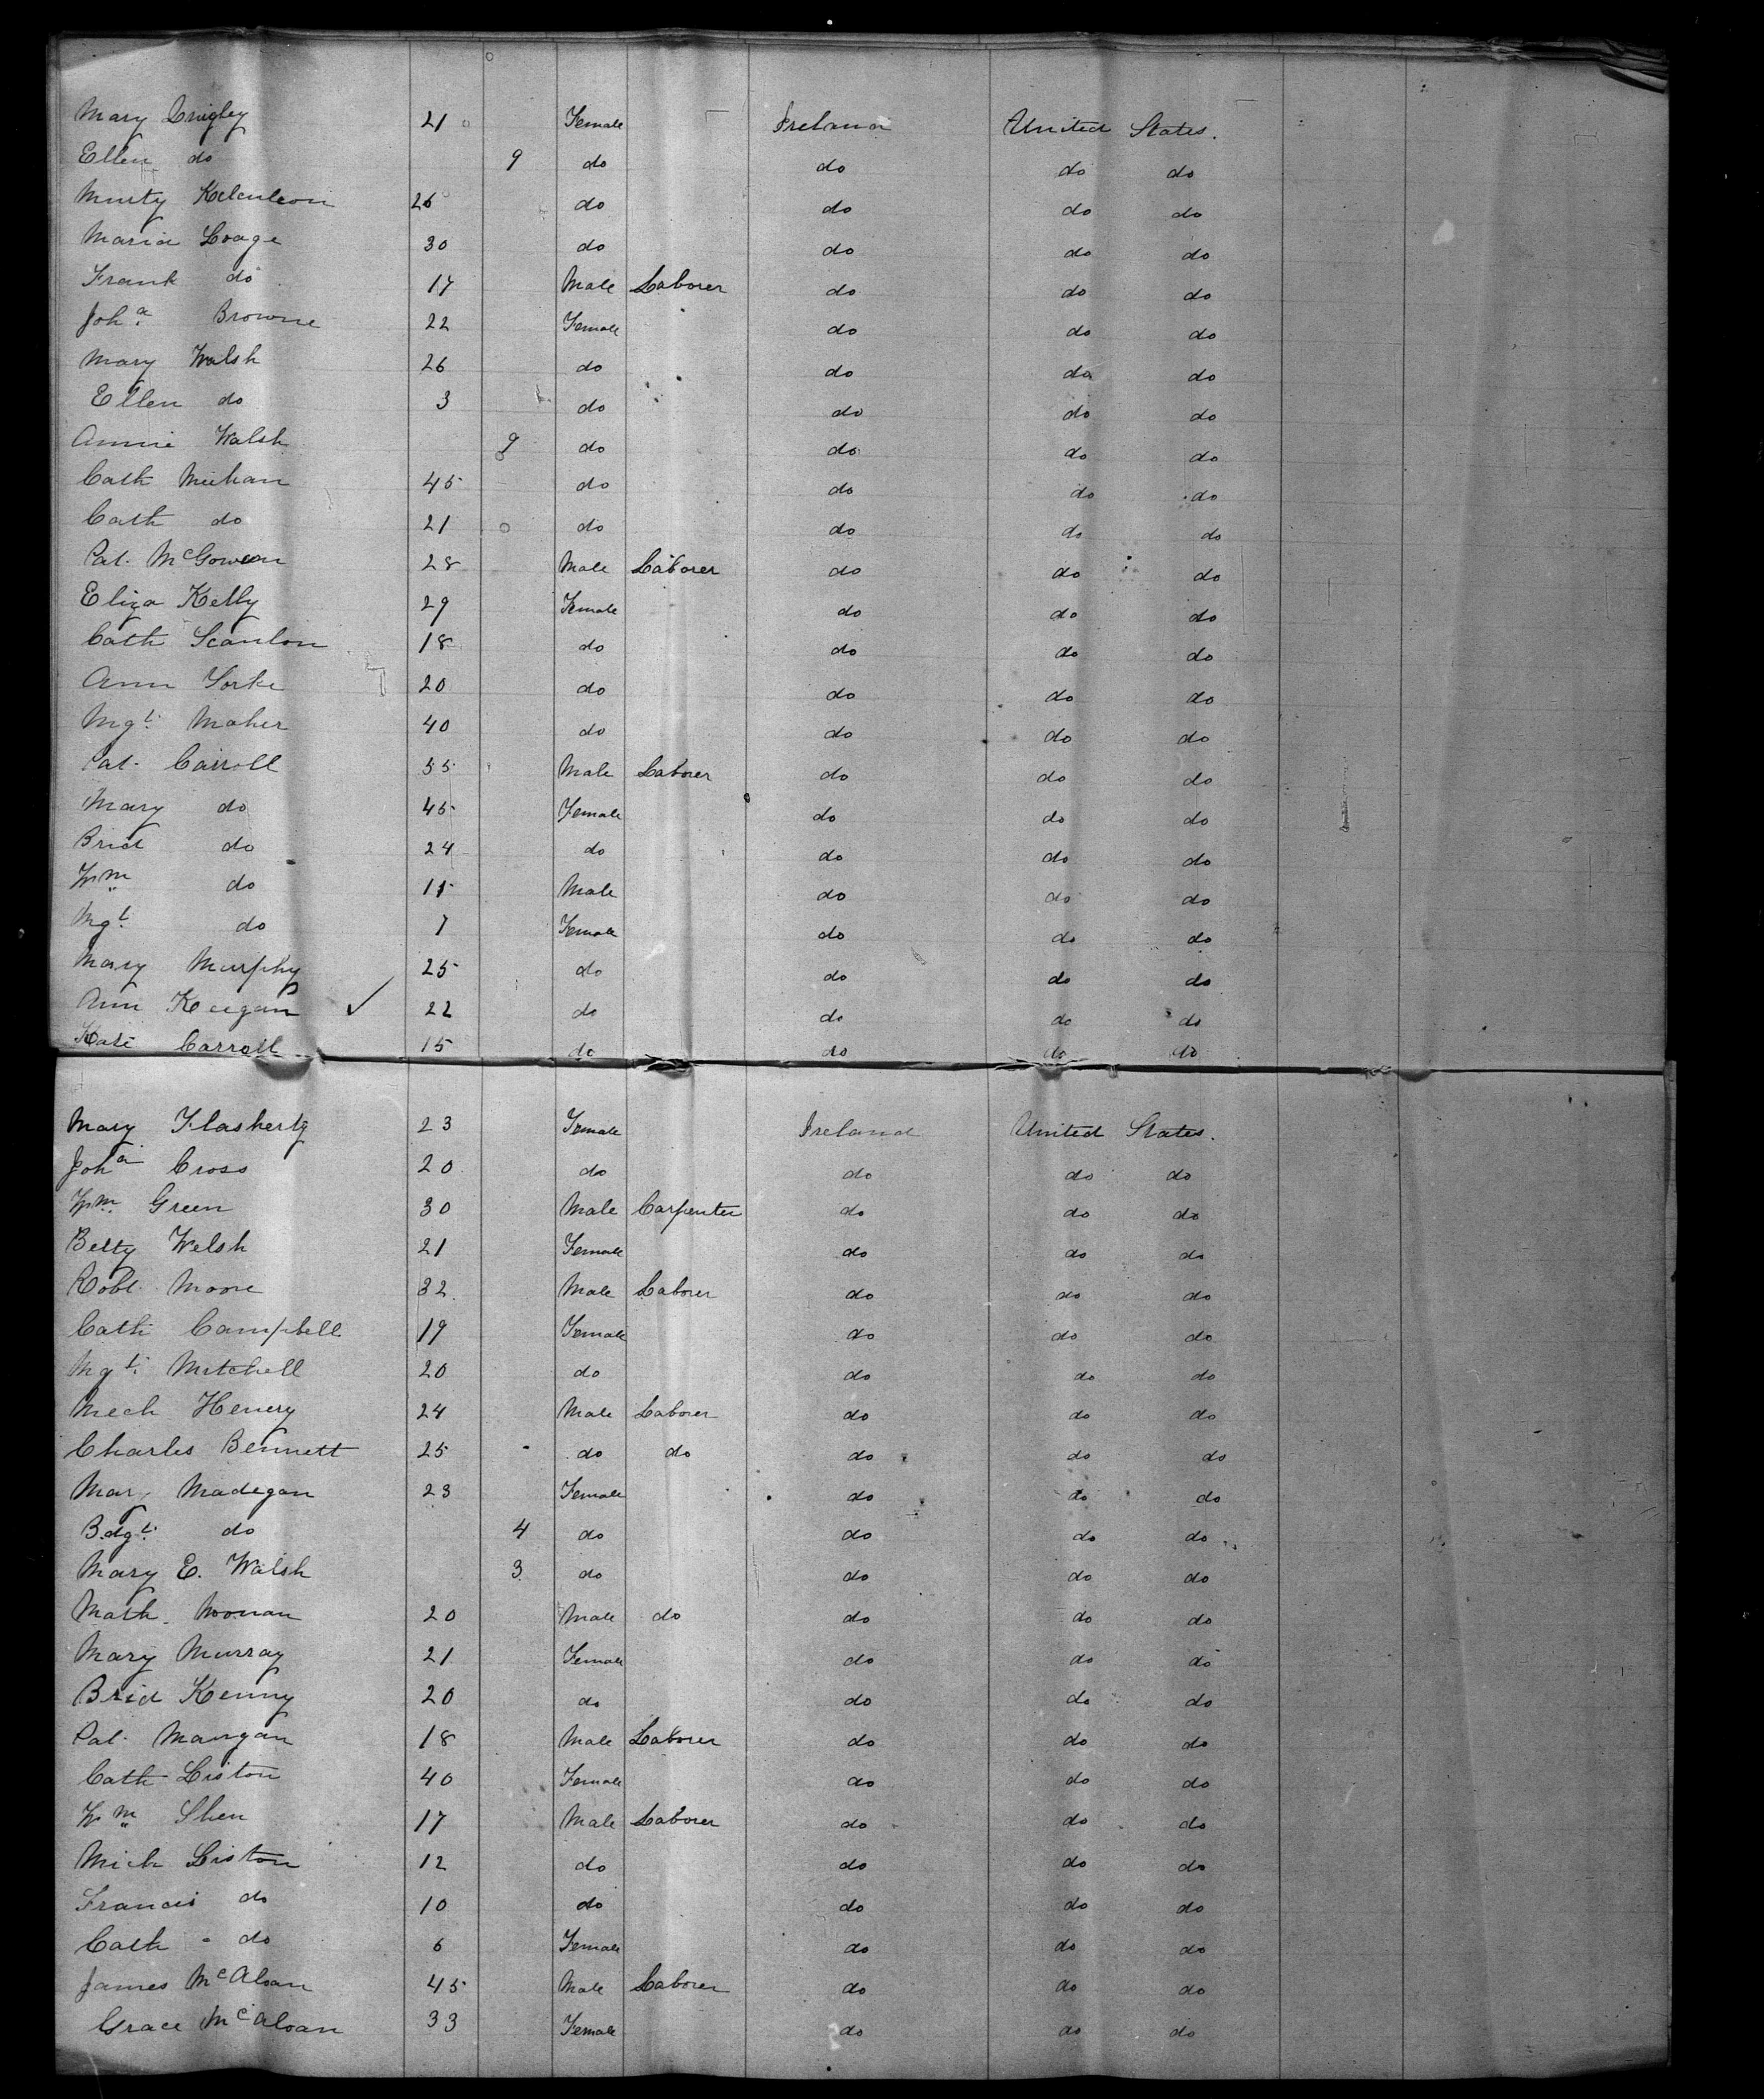 Mary Quigley 21 Female Ireland United States.
Ellen do 9 do do do do
Murty 26 do do do do
Maria Loage 30 do do do do
Frank do 17 Male Laborer do do do
Joh.a Browne 22 Female do do do
Mary Walsh 26 do do do do
Ellen do 3 do do do do
Annie Walsh 9 do do do do
Cath Meehan 45 do do do do
Cath do 21 do do do do
Pat. McGowan 28 Male Laborer do do do
Eliza Kelly 29 Female do do do
Cath Scanlon 18 do do do do
Ann Yorke 20 do do do do
Mgt. Maher 40 do do do do
Pat. Carroll 55 Male Laborer do do do
Mary do 45 Female do do do
Brid do 24 do do do do
Wm do 11 Male do do do
Mgt. do 7 Female do do do
Mary Murphy 25 do do do do
Ann Keegan ✓ 22 do do do do
Kate Carroll 15 do do do do
Mary Flasherty 23 Female Ireland United States.
Joha Cross 20 do do do do
Wm. Green 30 Male Carpenter do do do
Betty Welsh 21 Female do do do
Robt. Moore 32 Male Laborer do do do
Cath Campbell 19 Female do do do
Mgt. Mitchell 20 do do do do
Mech Henery 24 Male Laborer do do do
Charles Bennett 25 do do do do do
Mary Madegan 23 Female do do do
Bdgt. do 4 do do do do
Mary E. Walsh 3 do do do do
Math. Noonan 20 Male do do do do
Mary Murray 21 Female do do do
Brid Kenny 20 do do do do
Pat. Mangan 18 Male Laborer do do do
Cath Liston 40 Female do do do
Wm Shen 17 Male Laborer do do do
Mich Liston 12 do do do do
Francis do 10 do do do do
Cath do 6 Female do do do
James McAloan 45 Male Laborer do do do
Grace McAloan 33 Female do do do